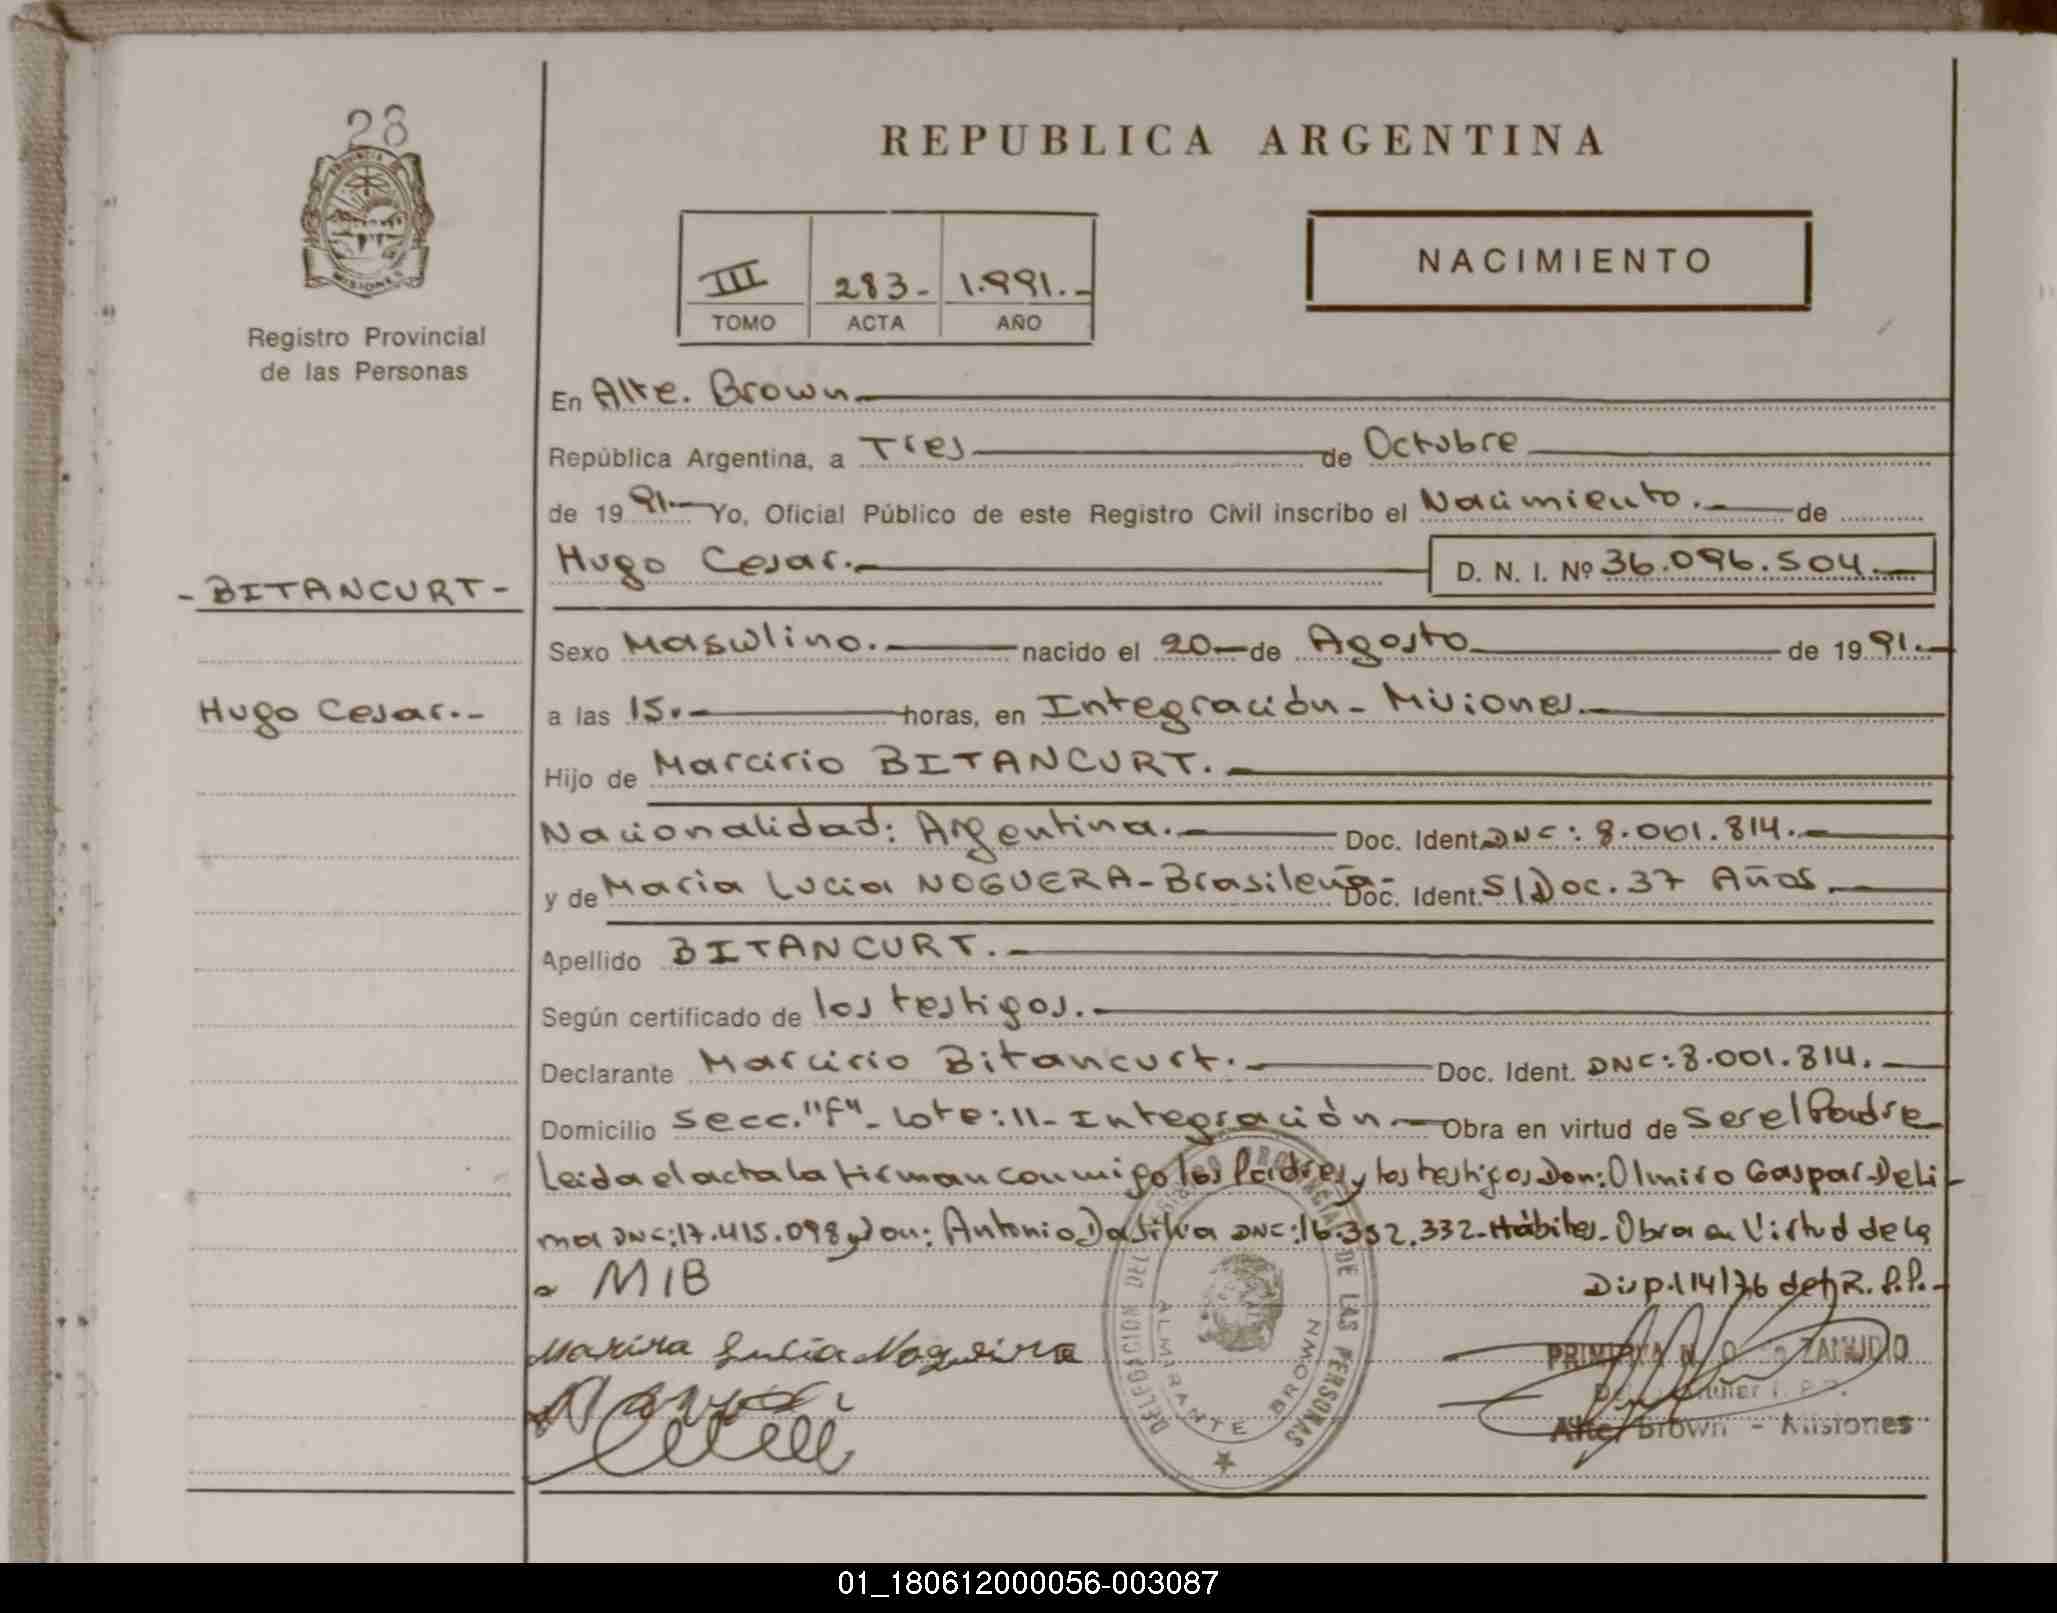 28
PROVINCIA
MISIONES
Registro Provincial
de las Personas
REPUBLICA ARGENTINA
NACIMIENTO
III 283- 1.991.-
TOMO ACTA AÑO
En Alte. Brown
República Argentina, a Tres de Octubre
de 1991.- Yo, Oficial Público de este Registro Civil inscribo el Nacimiento. de
Hugo Cesar. D. N. I. Nº 36.096.504.
- BITANCURT -
Hugo Cesar.-
Sexo Masculino. nacido el 20 de Agosto de 1991.-
a las 15.- horas, en Integración - Misiones.
Hijo de Marcirio BITANCURT.
Nacionalidad: Argentina. Doc. Ident. DNC: 8.001.814.
y de Maria Lucia NOGUERA - Brasileña- Doc. Ident. S/Doc. 37 Años.
Apellido BITANCURT.
Según certificado de los testigos.
Declarante Marcirio Bitancurt. Doc. Ident. DNC: 8.001.814.
Domicilio Secc. "F" - Lote: 11 - Integración. Obra en virtud de ser el Padre
Leida el acta la firman conmigo los Padres y los testigos Don: Olmiro Gaspar Deli-
ma DNC: 17.415.098 y Don: Antonio Da Silva DNC: 16.352.332 - Hábiles - Obra en Virtud de la
MIB Disp. 114/76 del R. P. P. -
Marira Lucia Nogueira
DELEGACION DEL REGISTRO PROVINCIAL DE LAS PERSONAS
ALMIRANTE BROWN
ZAMUDIO
Alte. Brown - Misiones
01_180612000056-003087